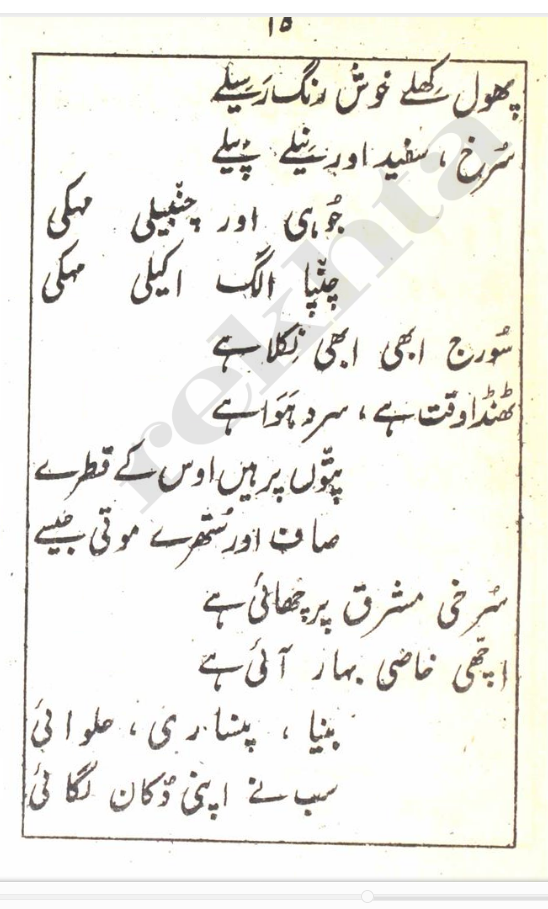 ۱۵
پھول کِھلے خوش رنگ رَسیلے
سُرخ ، سفید اور نیلے پیلے
جُوہی اور چنبیلی مہکی
چنپا الگ اکیلی مہکی
سُورج ابھی ابھی نِکلا ہے
ٹھنڈا وقت ہے ، سرد ہَوا ہے
پتّوں پر ہیں اوس کے قطرے
صاف اور سُتھرے موتی جیسے
سُرخی مشرق پر چھائی ہے
اچھّی خاصی بہار آئی ہے
بنیا ، پنساری ، حلوائی
سب نے اپنی دُکان لگائی
rekhta